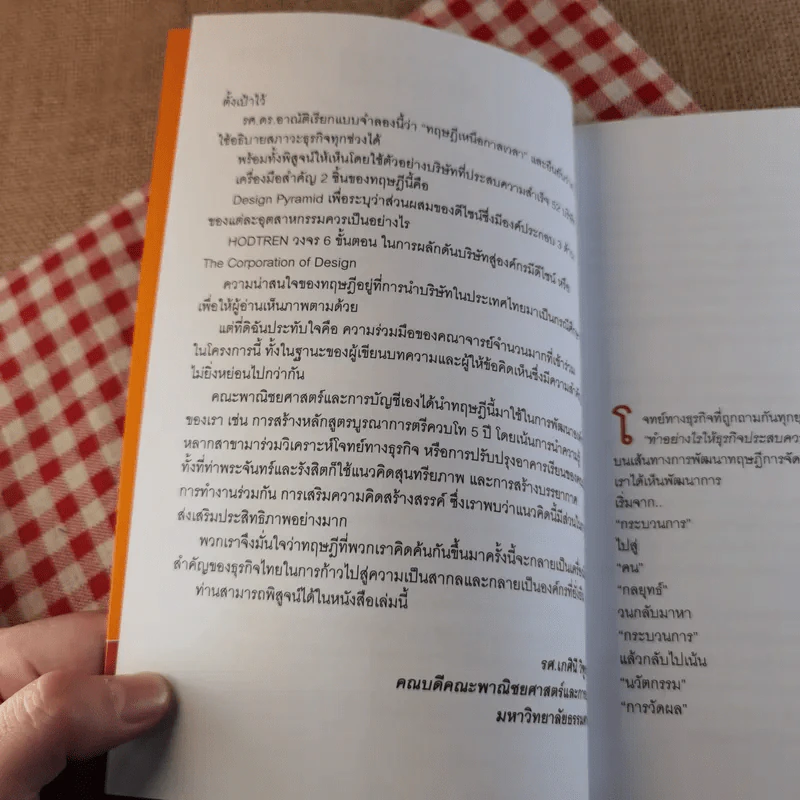 ตั้งเป้าไว้
รศ.ดร.อาณัติเรียกแบบจำลองนี้ว่า "ทฤษฎีเหนือกาลเวลา" และยืนยันว่า
ใช้อธิบายสภาวะธุรกิจทุกช่วงได้
พร้อมทั้งพิสูจน์ให้เห็นโดยใช้ตัวอย่างบริษัทที่ประสบความสำเร็จ 52
เครื่องมือสำคัญ 2 ชิ้นของทฤษฎีนี้คือ
Design Pyramid เพื่อระบุว่าส่วนผสมของดีไซน์ซึ่งมีองค์ประกอบ 3 ด้าน
ของแต่ละอุตสาหกรรมควรเป็นอย่างไร
HODTREN วงจร 6 ขั้นตอน ในการผลักดันบริษัทสู่องค์กรมีดีไซน์ หรือ
The Corporation of Design
ความน่าสนใจของทฤษฎีอยู่ที่การนำบริษัทในประเทศไทยมาเป็นกรณีศึกษา
เพื่อให้ผู้อ่านเห็นภาพตามด้วย
แต่ที่ดิฉันประทับใจคือ ความร่วมมือของคณาจารย์จำนวนมากที่เข้าร่วม
ในโครงการนี้ ทั้งในฐานะของผู้เขียนบทความและผู้ให้ข้อคิดเห็นซึ่งมีความสำคัญ
ไม่ยิ่งหย่อนไปกว่ากัน
คณะพาณิชยศาสตร์และการบัญชีเองได้นำทฤษฎีนี้มาใช้ในการพัฒนา
ของเรา เช่น การสร้างหลักสูตรบูรณาการตรีควบโท 5 ปี โดยเน้นการนำความรู้
หลากสาขามาร่วมวิเคราะห์โจทย์ทางธุรกิจ หรือการปรับปรุงอาคารเรียนของ
ทั้งที่ท่าพระจันทร์และรังสิตก็ใช้แนวคิดสุนทรียภาพ และการสร้างบรรยากาศ
การทำงานร่วมกัน การเสริมความคิดสร้างสรรค์ ซึ่งเราพบว่าแนวคิดนี้มีส่วนใน
ส่งเสริมประสิทธิภาพอย่างมาก
พวกเราจึงมั่นใจว่าทฤษฎีที่พวกเราคิดค้นกันขึ้นมาครั้งนี้จะกลายเป็น
สำคัญของธุรกิจไทยในการก้าวไปสู่ความเป็นสากลและกลายเป็นองค์กรที่
ท่านสามารถพิสูจน์ได้ในหนังสือเล่มนี้
รศ.เกศินี
คณบดีคณะพาณิชยศาสตร์และการ
มหาวิทยาลัยธรรม
โจทย์ทางธุรกิจที่ถูกถามกันทุกยุ
"ทำอย่างไรให้ธุรกิจประสบคว
บนเส้นทางการพัฒนาทฤษฎีการจัด
เราได้เห็นพัฒนาการ
เริ่มจาก..
"กระบวนการ"
ไปสู่
"คน"
"กลยุทธ์"
วนกลับมาหา
"กระบวนการ"
แล้วกลับไปเน้น
"นวัตกรรม"
"การวัดผล"